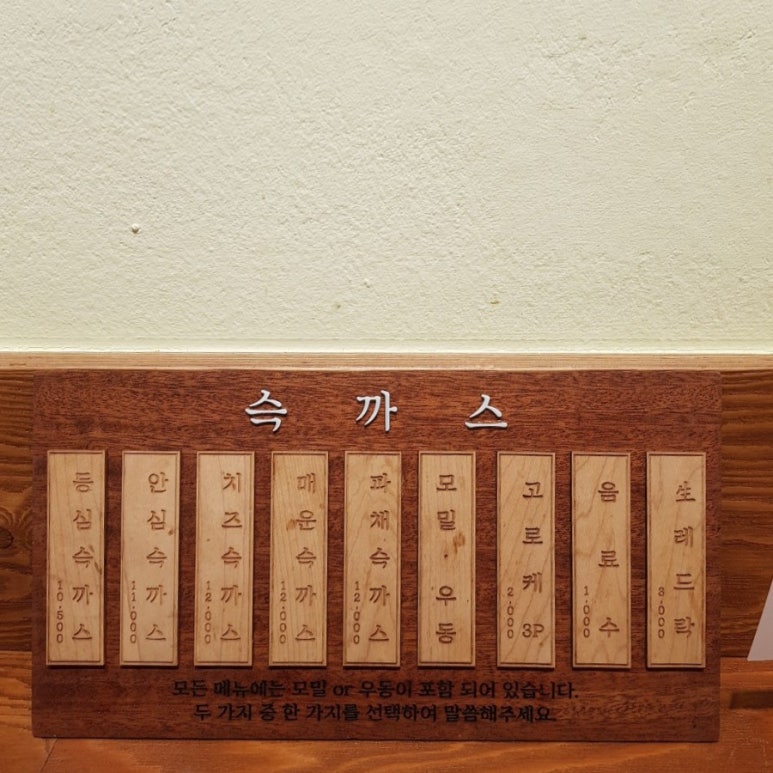 슥까스
등심슥까스 10,500
안심슥까스 11,000
치즈슥까스 12,000
매운슥까스 12,000
파채슥까스 12,000
모밀 우동
고로케 3P 2,000
음료수 1,000
生레드락 3,000
모든 메뉴에는 모밀 or 우동이 포함 되어 있습니다.
두 가지 중 한 가지를 선택하여 말씀해주세요.